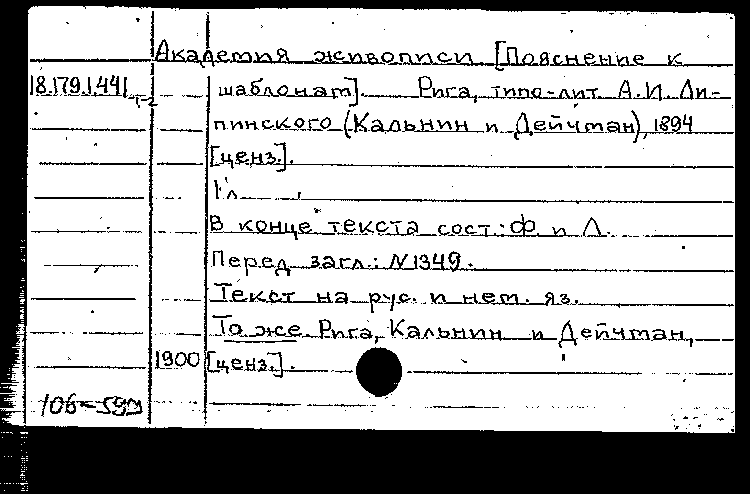 Академия живописи. [Пояснение к
18.179.1.441 шаблонам]. Рига, типо-лит. А.И. Ли-
т-2
пинского (Кальнин и Дейчман), 1894
[ценз.].
1 л.
В конце текста сост.: Ф. и Л.
Перед загл.: N1349.
Текст на рус. и нем. яз.
То же Рига, Кальнин и Дейчман,
1900 [ценз.].
106-